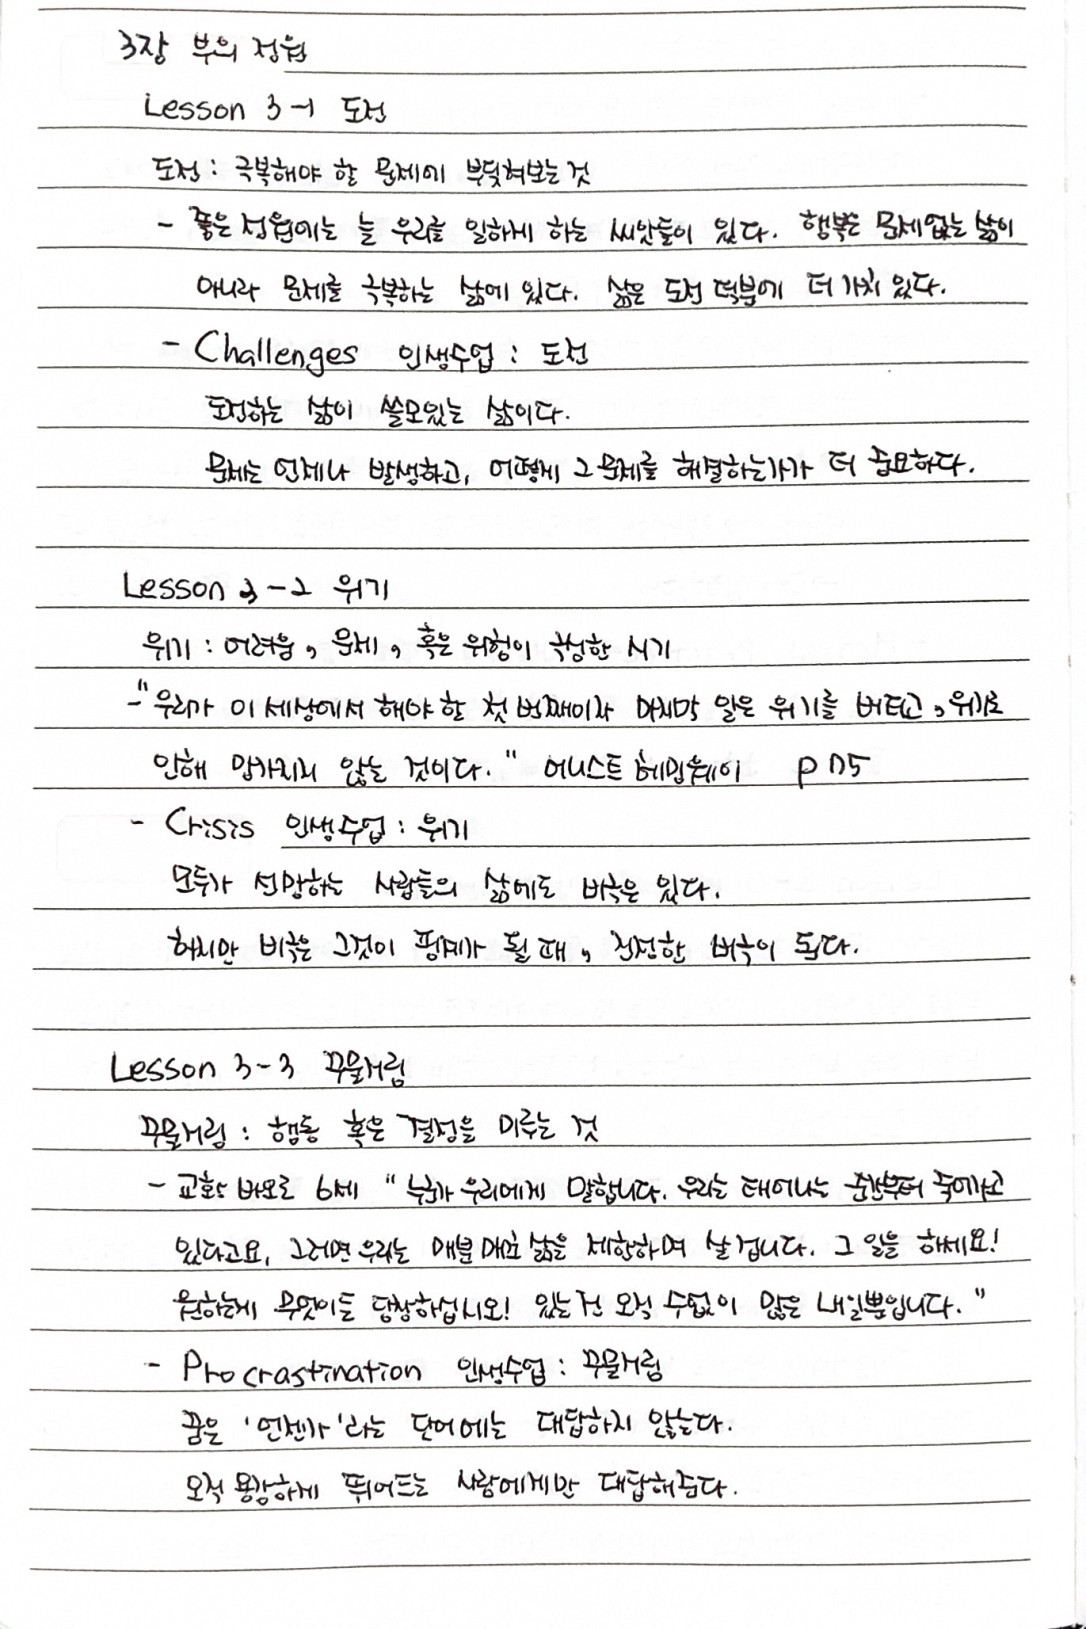 3장 부의 정원
Lesson 3-1 도전
도전 : 극복해야 할 문제에 부딪혀보는 것
- 좋은 정원에는 늘 우리를 일하게 하는 씨앗들이 있다. 행복은 문제없는 삶이
아니라 문제를 극복하는 삶에 있다. 삶은 도전 덕분에 더 가치 있다.
- Challenges 인생수업 : 도전
도전하는 삶이 쓸모있는 삶이다.
문제는 언제나 발생하고, 어떻게 그 문제를 해결하는가가 더 중요하다.
Lesson 3-2 위기
위기 : 어려움, 문제, 혹은 위험이 극성한 시기
- "우리가 이 세상에서 해야 할 첫 번째이자 마지막 일은 위기를 버티고, 위기로
인해 망가지지 않는 것이다." 어니스트 헤밍웨이 p175
- Crisis 인생수업 : 위기
모두가 선망하는 사람들의 삶에도 비극은 있다.
하지만 비극은 그것이 핑계가 될 때, 진정한 비극이 된다.
Lesson 3-3 꾸물거림
꾸물거림 : 행동 혹은 결정을 미루는 것
- 교황 바오로 6세 "누군가 우리에게 말합니다. 우리는 태어나는 순간부터 죽어가고
있다고요. 그러면 우리는 매분 매초 삶을 제한하며 살 겁니다. 그 일을 하세요!
원하는게 무엇이든 당장하십시오! 있는 건 오직 수없이 많은 내일뿐입니다."
- Procrastination 인생수업 : 꾸물거림
꿈은 '언젠가'라는 단어에는 대답하지 않는다.
오직 용감하게 뛰어드는 사람에게만 대답해준다.